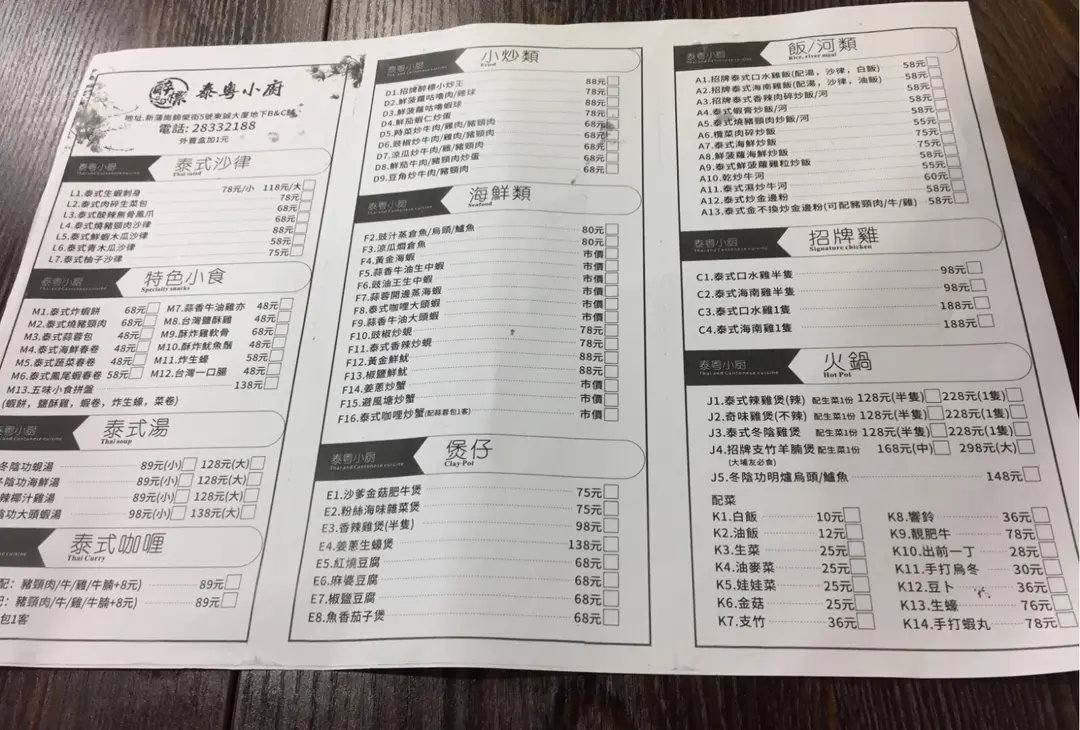 泰粵小廚
地址.新蒲崗錦榮街5號東誠大厦地下B&C舖
電話: 28332188
外賣盒加1元
泰粵小廚 泰式沙律
Thai and Cantonese cuisine Thai salad
L1.泰式生蝦刺身 78元/小 118元/大
L2.泰式肉碎生菜包 78元
L3.泰式酸辣無骨鳳爪 68元
L4.泰式燒豬頸肉沙律 68元
L5.泰式鮮蝦木瓜沙律 88元
L6.泰式青木瓜沙律 58元
L7.泰式柚子沙律 75元
泰粵小廚 特色小食
Thai and Cantonese cuisine Specialty snacks
M1.泰式炸蝦餅 68元
M2.泰式燒豬頸肉 68元
M3.泰式蒜蓉包 48元
M4.泰式海鮮春卷 48元
M5.泰式蔬菜春卷 48元
M6.泰式鳳尾蝦春卷 58元
M7.蒜香牛油雞亦 48元
M8.台灣鹽酥雞 48元
M9.酥炸雞軟骨 68元
M10.酥炸魷魚鬚 48元
M11.炸生蠔 58元
M12.台灣一口腸 48元
M13.五味小食拼盤 138元
(蝦餅，鹽酥雞，蝦卷，炸生蠔，菜卷)
泰粵小廚 泰式湯
Thai and Cantonese cuisine Thai soup
冬陰功蝦湯 89元(小) 128元(大)
冬陰功海鮮湯 89元(小) 128元(大)
辣椰汁雞湯 89元(小) 128元(大)
陰功大頭蝦湯 98元(小) 138元(大)
小廚 泰式咖喱
Thai Curry
配：豬頸肉/牛/雞/牛腩+8元) 89元
豬頸肉/牛/雞/牛腩+8元) 89元
包1客
泰粵小廚 小炒類
Thai and Cantonese cuisine Fried
D1.招牌醉樑小炒王 88元
D2.鮮菠蘿咕嚕肉/雞球 78元
D3.鮮菠蘿咕嚕蝦球 88元
D4.鮮茄蝦仁炒蛋 78元
D5.時菜炒牛肉/雞肉/豬頸肉 68元
D6.豉椒炒牛肉/雞肉/豬頸肉 68元
D7.涼瓜炒牛肉/雞/豬頸肉 68元
D8.鮮茄牛肉/豬頸肉炒蛋 68元
D9.豆角炒牛肉/豬頸肉 68元
泰粵小廚 海鮮類
Thai and Cantonese cuisine Seafood
F2.豉汁蒸倉魚/烏頭/鱸魚 80元
F3.涼瓜燜倉魚 80元
F4.黃金海蝦 市價
F5.蒜香牛油生中蝦 市價
F6.豉油王生中蝦 市價
F7.蒜蓉開邊蒸海蝦 市價
F8.泰式咖哩大頭蝦 市價
F9.蒜香牛油大頭蝦 市價
F10.豉椒炒蜆 78元
F11.泰式香辣炒蜆 78元
F12.黃金鮮魷 88元
F13.椒鹽鮮魷 88元
F14.姜蔥炒蟹 市價
F15.避風塘炒蟹 市價
F16.泰式咖哩炒蟹(配蒜蓉包1客) 市價
泰粵小廚 煲仔
Thai and Cantonese cuisine Clay Pot
E1.沙爹金菇肥牛煲 75元
E2.粉絲海味雜菜煲 75元
E3.香辣雞煲(半隻) 98元
E4.姜蔥生蠔煲 138元
E5.紅燒豆腐 68元
E6.麻婆豆腐 68元
E7.椒鹽豆腐 68元
E8.魚香茄子煲 68元
泰粵小廚 飯/河類
Thai and Cantonese cuisine Rice, river meal
A1.招牌泰式口水雞飯(配湯，沙律，白飯) 58元
A2.招牌泰式海南雞飯(配湯，沙律，油飯) 58元
A3.招牌泰式香辣肉碎炒飯/河 58元
A4.泰式蝦膏炒飯/河 58元
A5.泰式燒豬頸肉炒飯/河 55元
A6.欖菜肉碎炒飯 55元
A7.泰式海鮮炒飯 75元
A8.鮮菠蘿海鮮炒飯 75元
A9.泰式鮮菠蘿雞粒炒飯 58元
A10.乾炒牛河 55元
A11.泰式濕炒牛河 60元
A12.泰式炒金邊粉 58元
A13.泰式金不換炒金邊粉(可配豬頸肉/牛/雞) 58元
泰粵小廚 招牌雞
Thai and Cantonese cuisine Signature chicken
C1.泰式口水雞半隻 98元
C2.泰式海南雞半隻 98元
C3.泰式口水雞1隻 188元
C4.泰式海南雞1隻 188元
泰粵小廚 火鍋
Thai and Cantonese cuisine Hot Pot
J1.泰式辣雞煲(辣) 配生菜1份 128元(半隻) 228元(1隻)
J2.奇味雞煲(不辣) 配生菜1份 128元(半隻) 228元(1隻)
J3.泰式冬陰雞煲 配生菜1份 128元(半隻) 228元(1隻)
J4.招牌支竹羊腩煲 配生菜1份 168元(中) 298元(大)
(大埔友必食)
J5.冬陰功明爐烏頭/鱸魚 148元
配菜
K1.白飯 10元
K2.油飯 12元
K3.生菜 25元
K4.油麥菜 25元
K5.娃娃菜 25元
K6.金菇 25元
K7.支竹 36元
K8.響鈴 36元
K9.靚肥牛 78元
K10.出前一丁 28元
K11.手打烏冬 30元
K12.豆卜 36元
K13.生蠔 76元
K14.手打蝦丸 78元